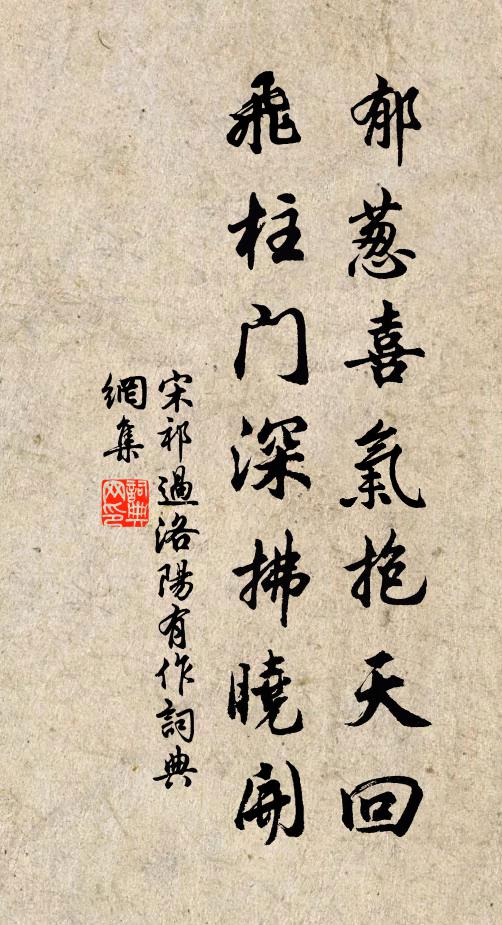 郁葱喜氣抱天回
飛柱門深拂曉開
宋祁過洛陽有作詞典
網集
詞典
网印